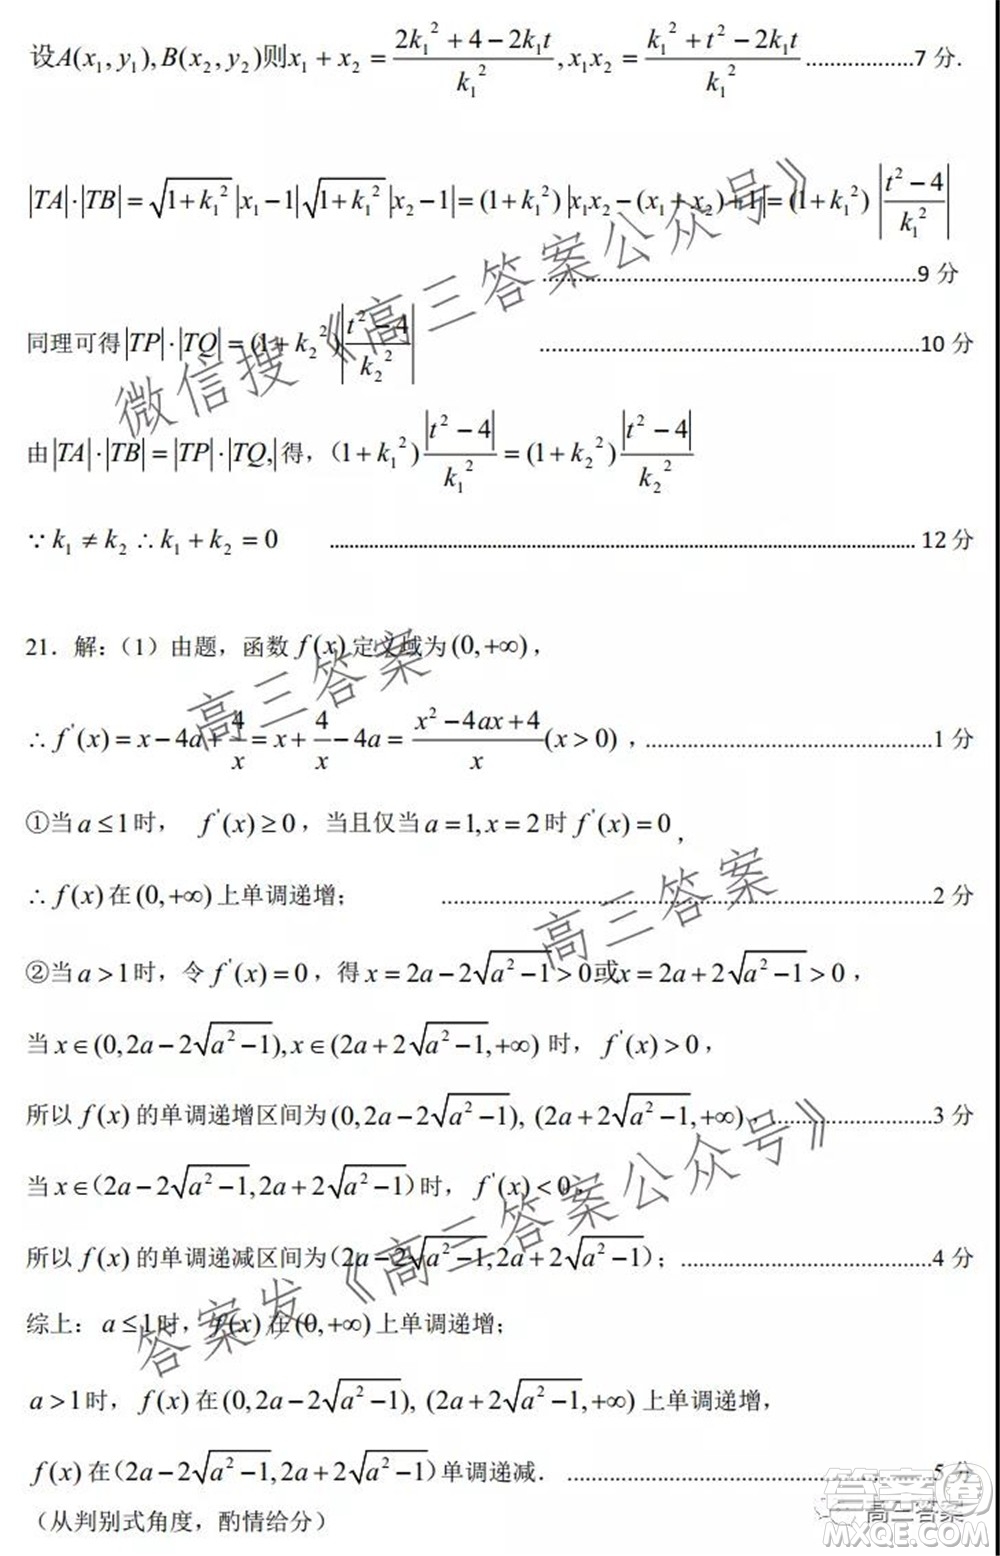 设A(x₁,y₁),B(x₂,y₂)则x₁+x₂=(2k₁²+4−2k₁t)/k₁²,x₁x₂=(k₁²+t²−2k₁t)/k₁²..................7 分.
|TA|·|TB|=√(1+k₁²)|x₁−1|√(1+k₁²)|x₂−1|=(1+k₁²)|x₁x₂−(x₁+x₂)+1|=(1+k₁²)|(t²−4)/k₁²|
..................9 分
同理可得|TP|·|TQ|=(1+k₂²)|(t²−4)/k₂²| ..................10 分
由|TA|·|TB|=|TP|·|TQ,|得，(1+k₁²)|t²−4|/k₁²=(1+k₂²)|t²−4|/k₂²
∵k₁≠k₂∴k₁+k₂=0 ..................12 分
21．解：（1）由题，函数f(x)定义域为(0,+∞)，
∴f'(x)=x−4a+4/x=x+4/x−4a=(x²−4ax+4)/x(x>0)，..................1 分
①当a≤1时， f'(x)≥0，当且仅当a=1,x=2时f'(x)=0，
∴f(x)在(0,+∞)上单调递增； ..................2 分
②当a>1时，令f'(x)=0，得x=2a−2√(a²−1)>0或x=2a+2√(a²−1)>0，
当x∈(0,2a−2√(a²−1)),x∈(2a+2√(a²−1),+∞)时，f'(x)>0，
所以f(x)的单调递增区间为(0,2a−2√(a²−1)), (2a+2√(a²−1),+∞)..................3 分
当x∈（2a−2√(a²−1),2a+2√(a²−1)）时，f'(x)<0，
所以f(x)的单调递减区间为（2a−2√(a²−1),2a+2√(a²−1)）；..................4 分
综上：a≤1时，f(x)在(0,+∞)上单调递增；
a>1时，f(x)在(0,2a−2√(a²−1)), (2a+2√(a²−1),+∞)上单调递增，
f(x)在（2a−2√(a²−1),2a+2√(a²−1)）单调递减． ..................5 分
（从判别式角度，酌情给分）
微信搜《高三答案公众号》
高三答案
高三答案
答案发《高三答案公众号》
高三答案
答案圈
MXQE.COM